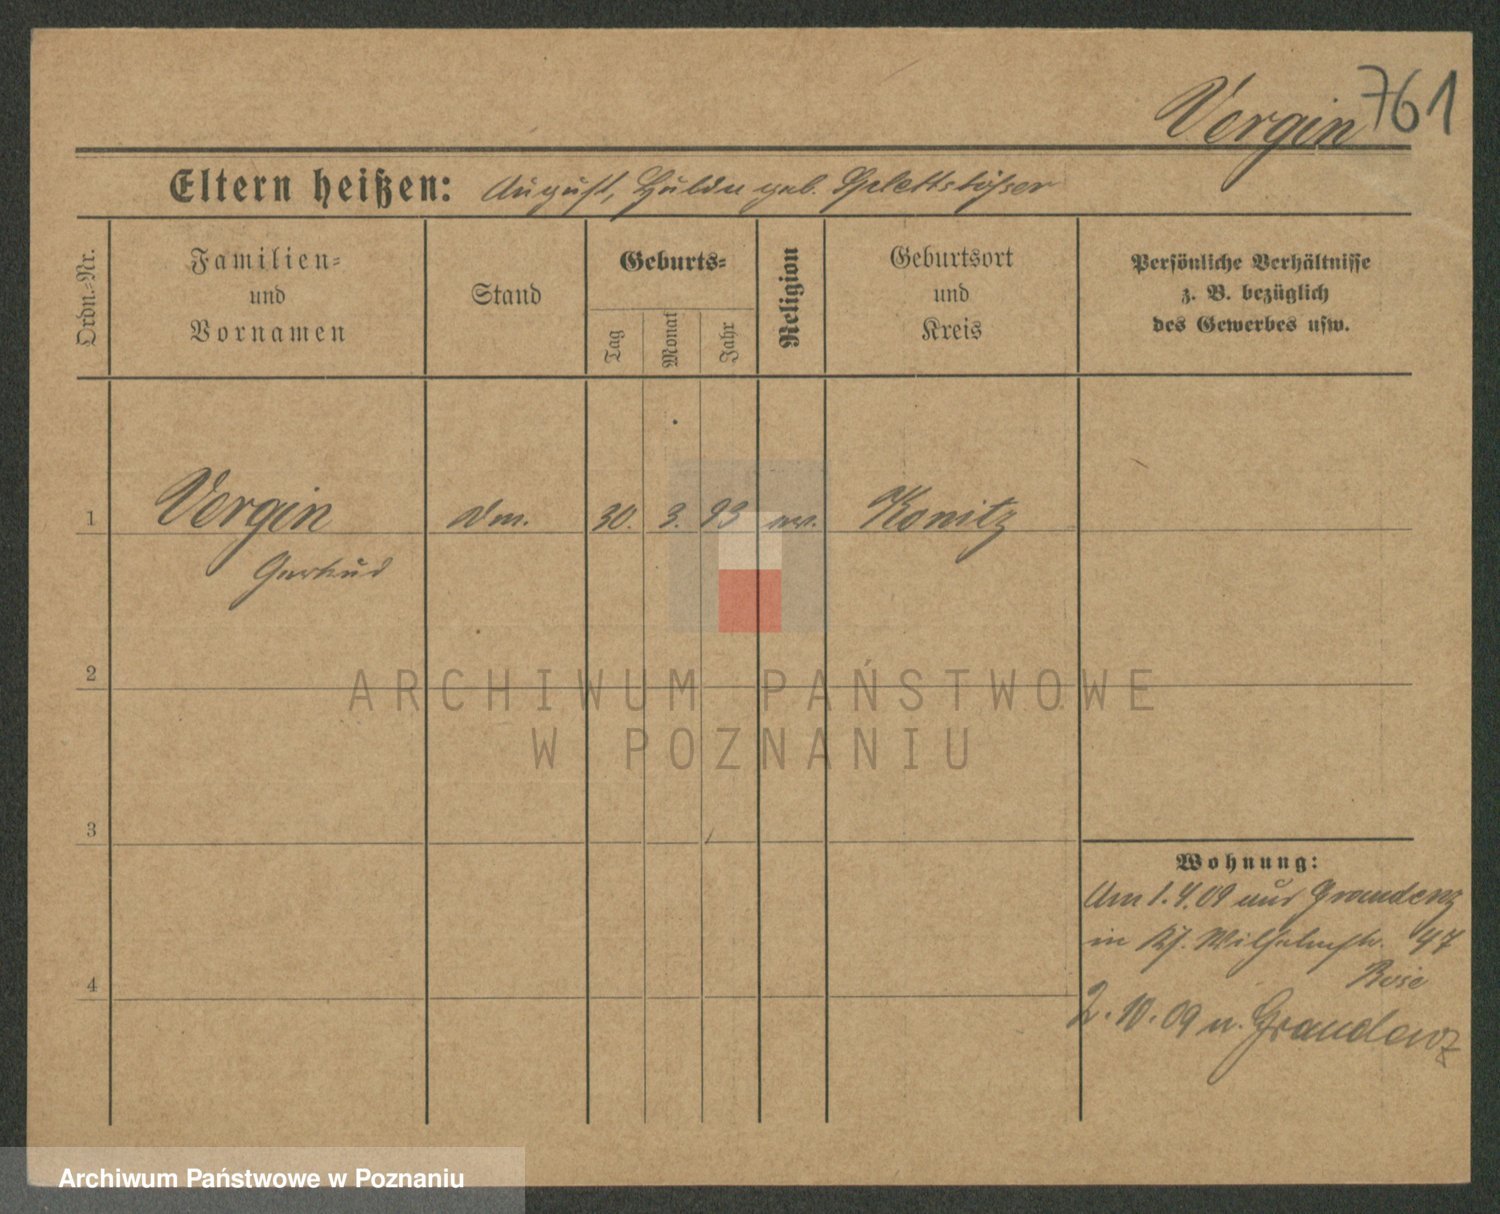 Vergin 761
Eltern heißen: August, Hulda geb. Splettstößer
Ordn.-Nr.
Familien- und Vornamen
Stand
Geburts-
Tag
Monat
Jahr
Religion
Geburtsort und Kreis
Persönliche Verhältnisse z. B. bezüglich des Gewerbes usw.
1 Vergin 30. 3. 93 ev. Konitz
Gertrud
2
3
4
Wohnung:
Am 1.4.09 aus Graudenz
in Kl. Wilhelmstr. 47
Rose
2.10.09 n. Graudenz
ARCHIWUM PAŃSTWOWE
W POZNANIU
Archiwum Państwowe w Poznaniu